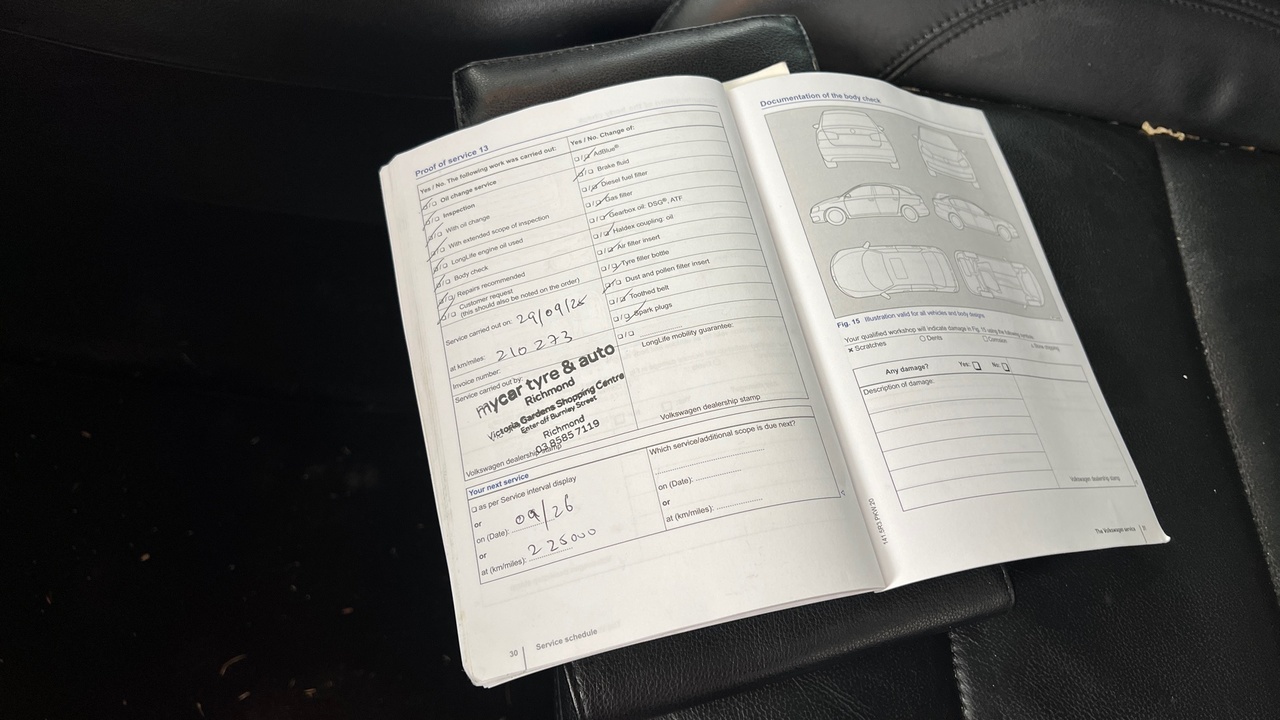 Proof of service 13
Yes / No. The following work was carried out:
Oil change service
Inspection
With oil change
With extended scope of inspection
LongLife engine oil used
Body check
Repairs recommended
Customer request
(this should also be noted on the order)
Service carried out on: 29/09/25
at km/miles: 210 273
Invoice number:
Service carried out by:
mycar tyre & auto
Richmond
Victoria Gardens Shopping Centre
Enter off Burnley Street
Richmond
03 9585 7119
Volkswagen dealership stamp
Yes / No. Change of:
AdBlue®
Brake fluid
Diesel fuel filter
Gas filter
Gearbox oil: DSG®, ATF
Haldex coupling: oil
Air filter insert
Tyre filler bottle
Dust and pollen filter insert
Toothed belt
Spark plugs
LongLife mobility guarantee:
Volkswagen dealership stamp
Your next service
as per Service interval display
or
on (Date): 09/26
or
at (km/miles): 225000
Which service/additional scope is due next?
on (Date):
or
at (km/miles):
30 Service schedule
Documentation of the body check
Fig. 15 Illustration valid for all vehicles and body designs
Your qualified workshop will indicate damage in Fig. 15 using the following
x Scratches
Dents
Corrosion
Stone chipping
Any damage? Yes: No:
Description of damage:
Volkswagen dealership stamp
141.5R3.PKW.20
The Volkswagen service